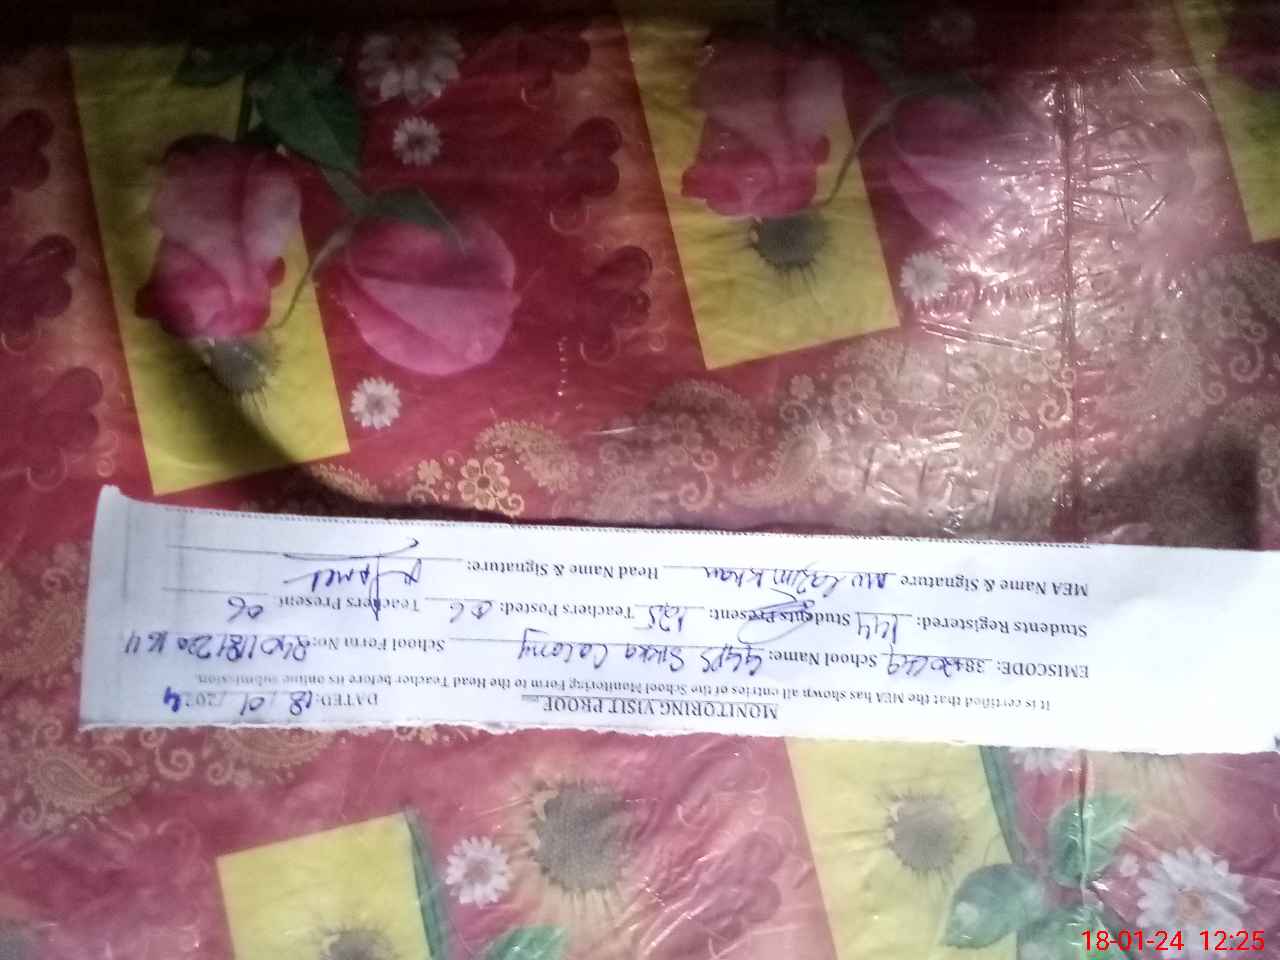 MONITORING VISIT PROOF DATED: 18/01/2024
It is certified that the MEA has shown all entries of the School Monitoring Form to the Head Teacher before its online submission.
EMISCODE: 38 School Name: GGPS Colony School Form No:
Students Registered: 144 Students Present: 125 Teachers Posted: 06 Teachers Present 06
MEA Name & Signature Khan Head Name & Signature:
18-01-24 12:25